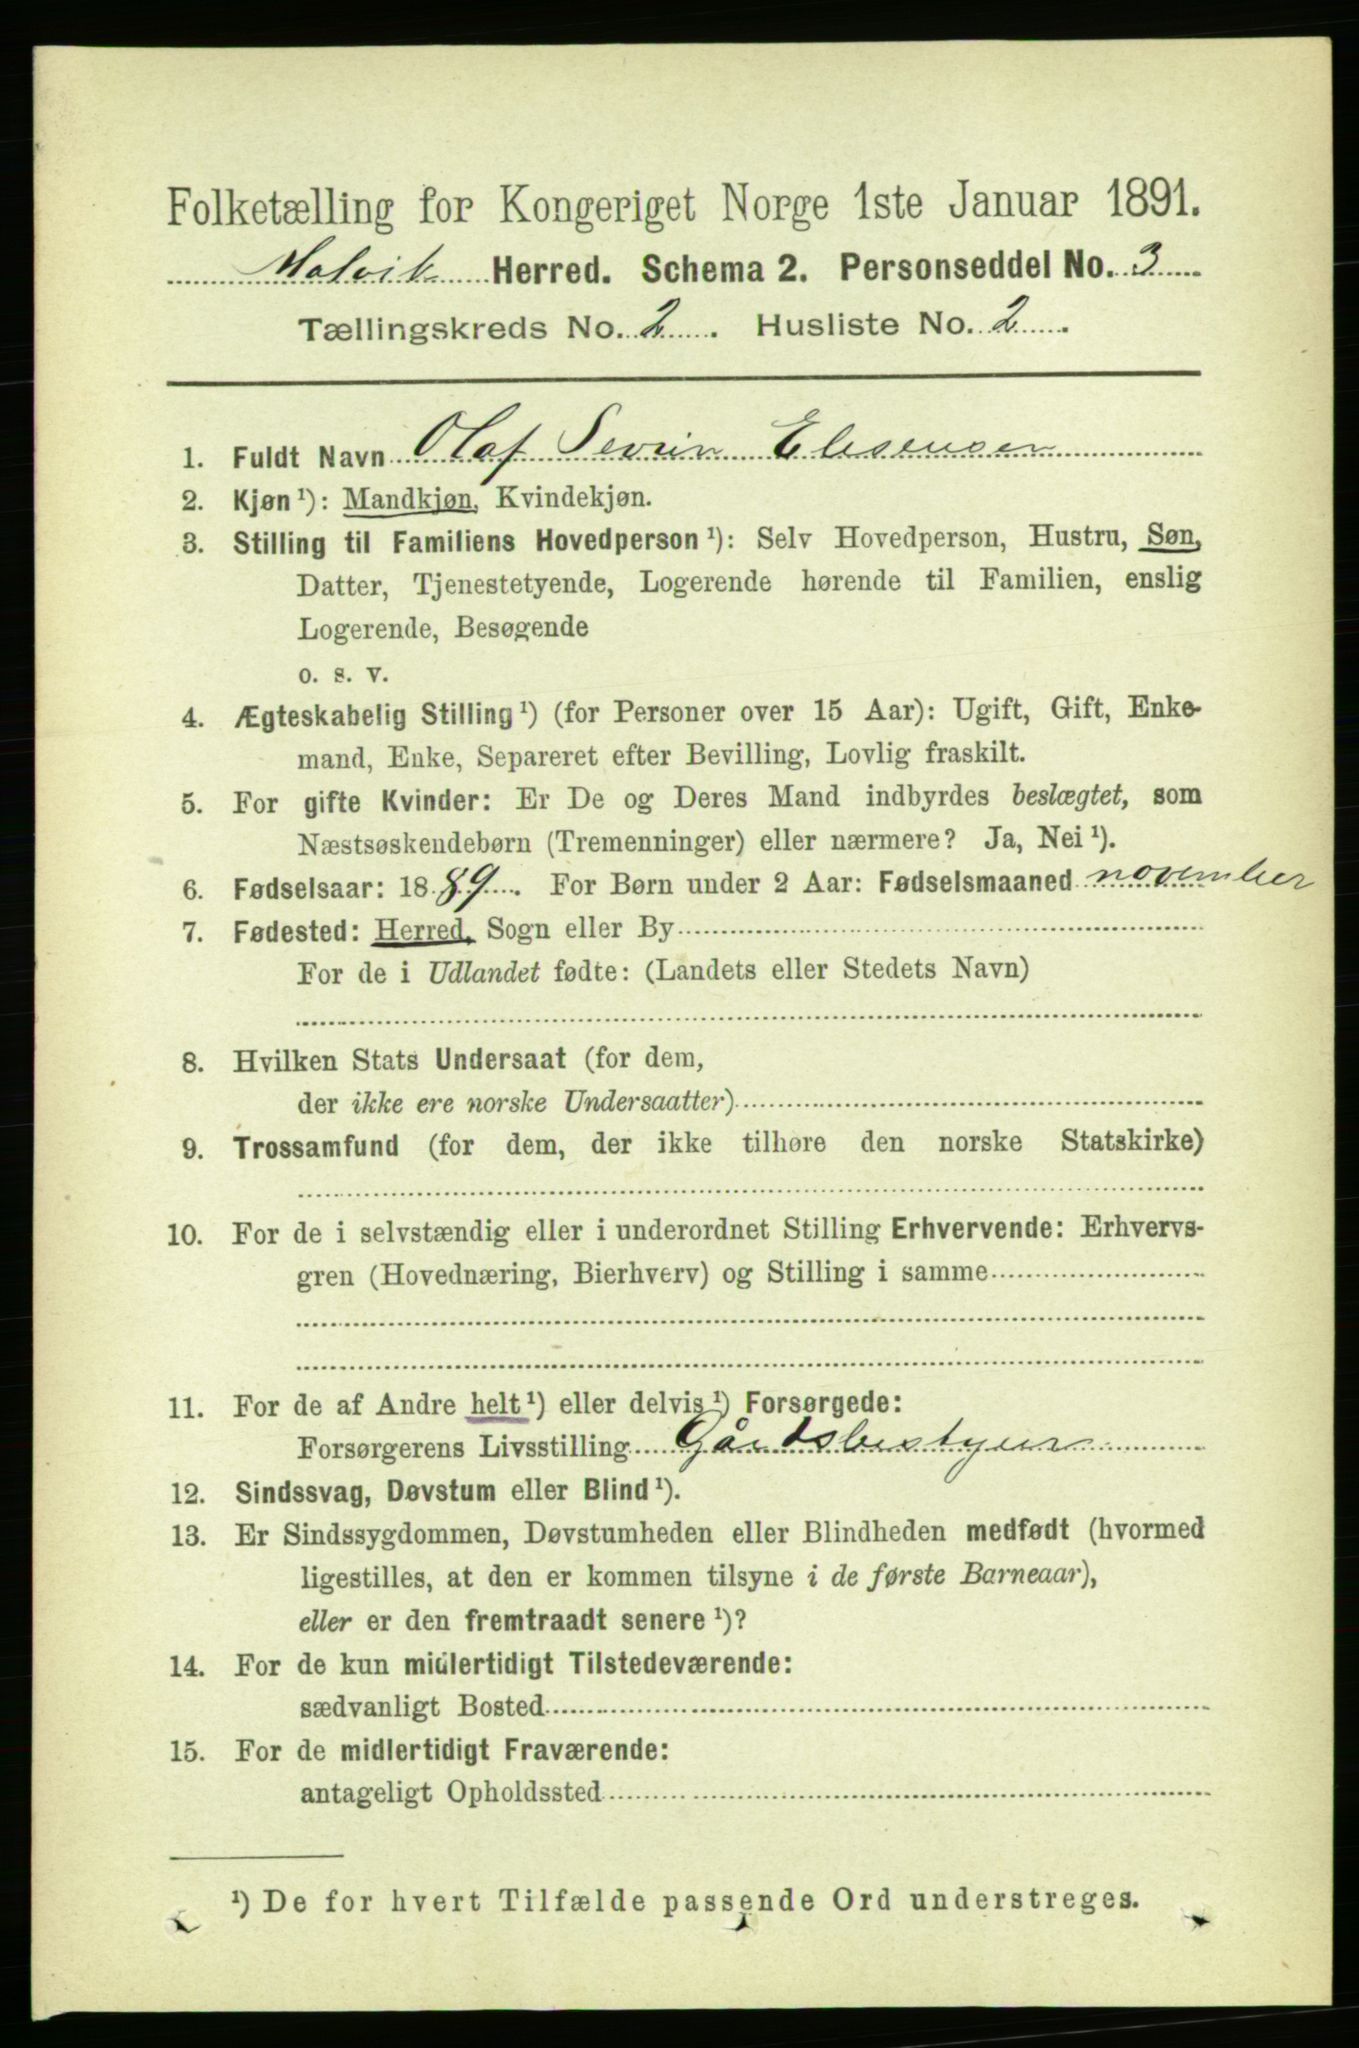 Folketælling for Kongeriget Norge 1ste Januar 1891.
Malvik Herred. Schema 2. Personseddel No. 3
Tællingskreds No. 2. Husliste No. 2.
1. Fuldt Navn Olaf Sevrin Elesensen
2. Kjøn ¹): Mandkjøn, Kvindekjøn.
3. Stilling til Familiens Hovedperson ¹): Selv Hovedperson, Hustru, Søn,
Datter, Tjenestetyende, Logerende hørende til Familien, enslig
Logerende, Besøgende
o. s. v.
4. Ægteskabelig Stilling ¹) (for Personer over 15 Aar): Ugift, Gift, Enke-
mand, Enke, Separeret efter Bevilling, Lovlig fraskilt.
5. For gifte Kvinder: Er De og Deres Mand indbyrdes beslægtet, som
Næstsøskendebørn (Tremenninger) eller nærmere? Ja, Nei ¹).
6. Fødselsaar: 1889. For Børn under 2 Aar: Fødselsmaaned november
7. Fødested: Herred, Sogn eller By
For de i Udlandet fødte: (Landets eller Stedets Navn)
8. Hvilken Stats Undersaat (for dem,
der ikke ere norske Undersaatter)
9. Trossamfund (for dem, der ikke tilhøre den norske Statskirke)
10. For de i selvstændig eller i underordnet Stilling Erhvervende: Erhvervs-
gren (Hovednæring, Bierhverv) og Stilling i samme
11. For de af Andre helt ¹) eller delvis ¹) Forsørgede:
Forsørgerens Livsstilling Gårdsbestyrer
12. Sindssvag, Døvstum eller Blind ¹).
13. Er Sindssygdommen, Døvstumheden eller Blindheden medfødt (hvormed
ligestilles, at den er kommen tilsyne i de første Barneaar),
eller er den fremtraadt senere ¹)?
14. For de kun midlertidigt Tilstedeværende:
sædvanligt Bosted
15. For de midlertidigt Fraværende:
antageligt Opholdssted
¹) De for hvert Tilfælde passende Ord understreges.